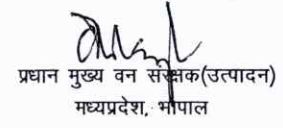 प्रधान मुख्य वन संरक्षक(उत्पादन)
मध्यप्रदेश, भोपाल